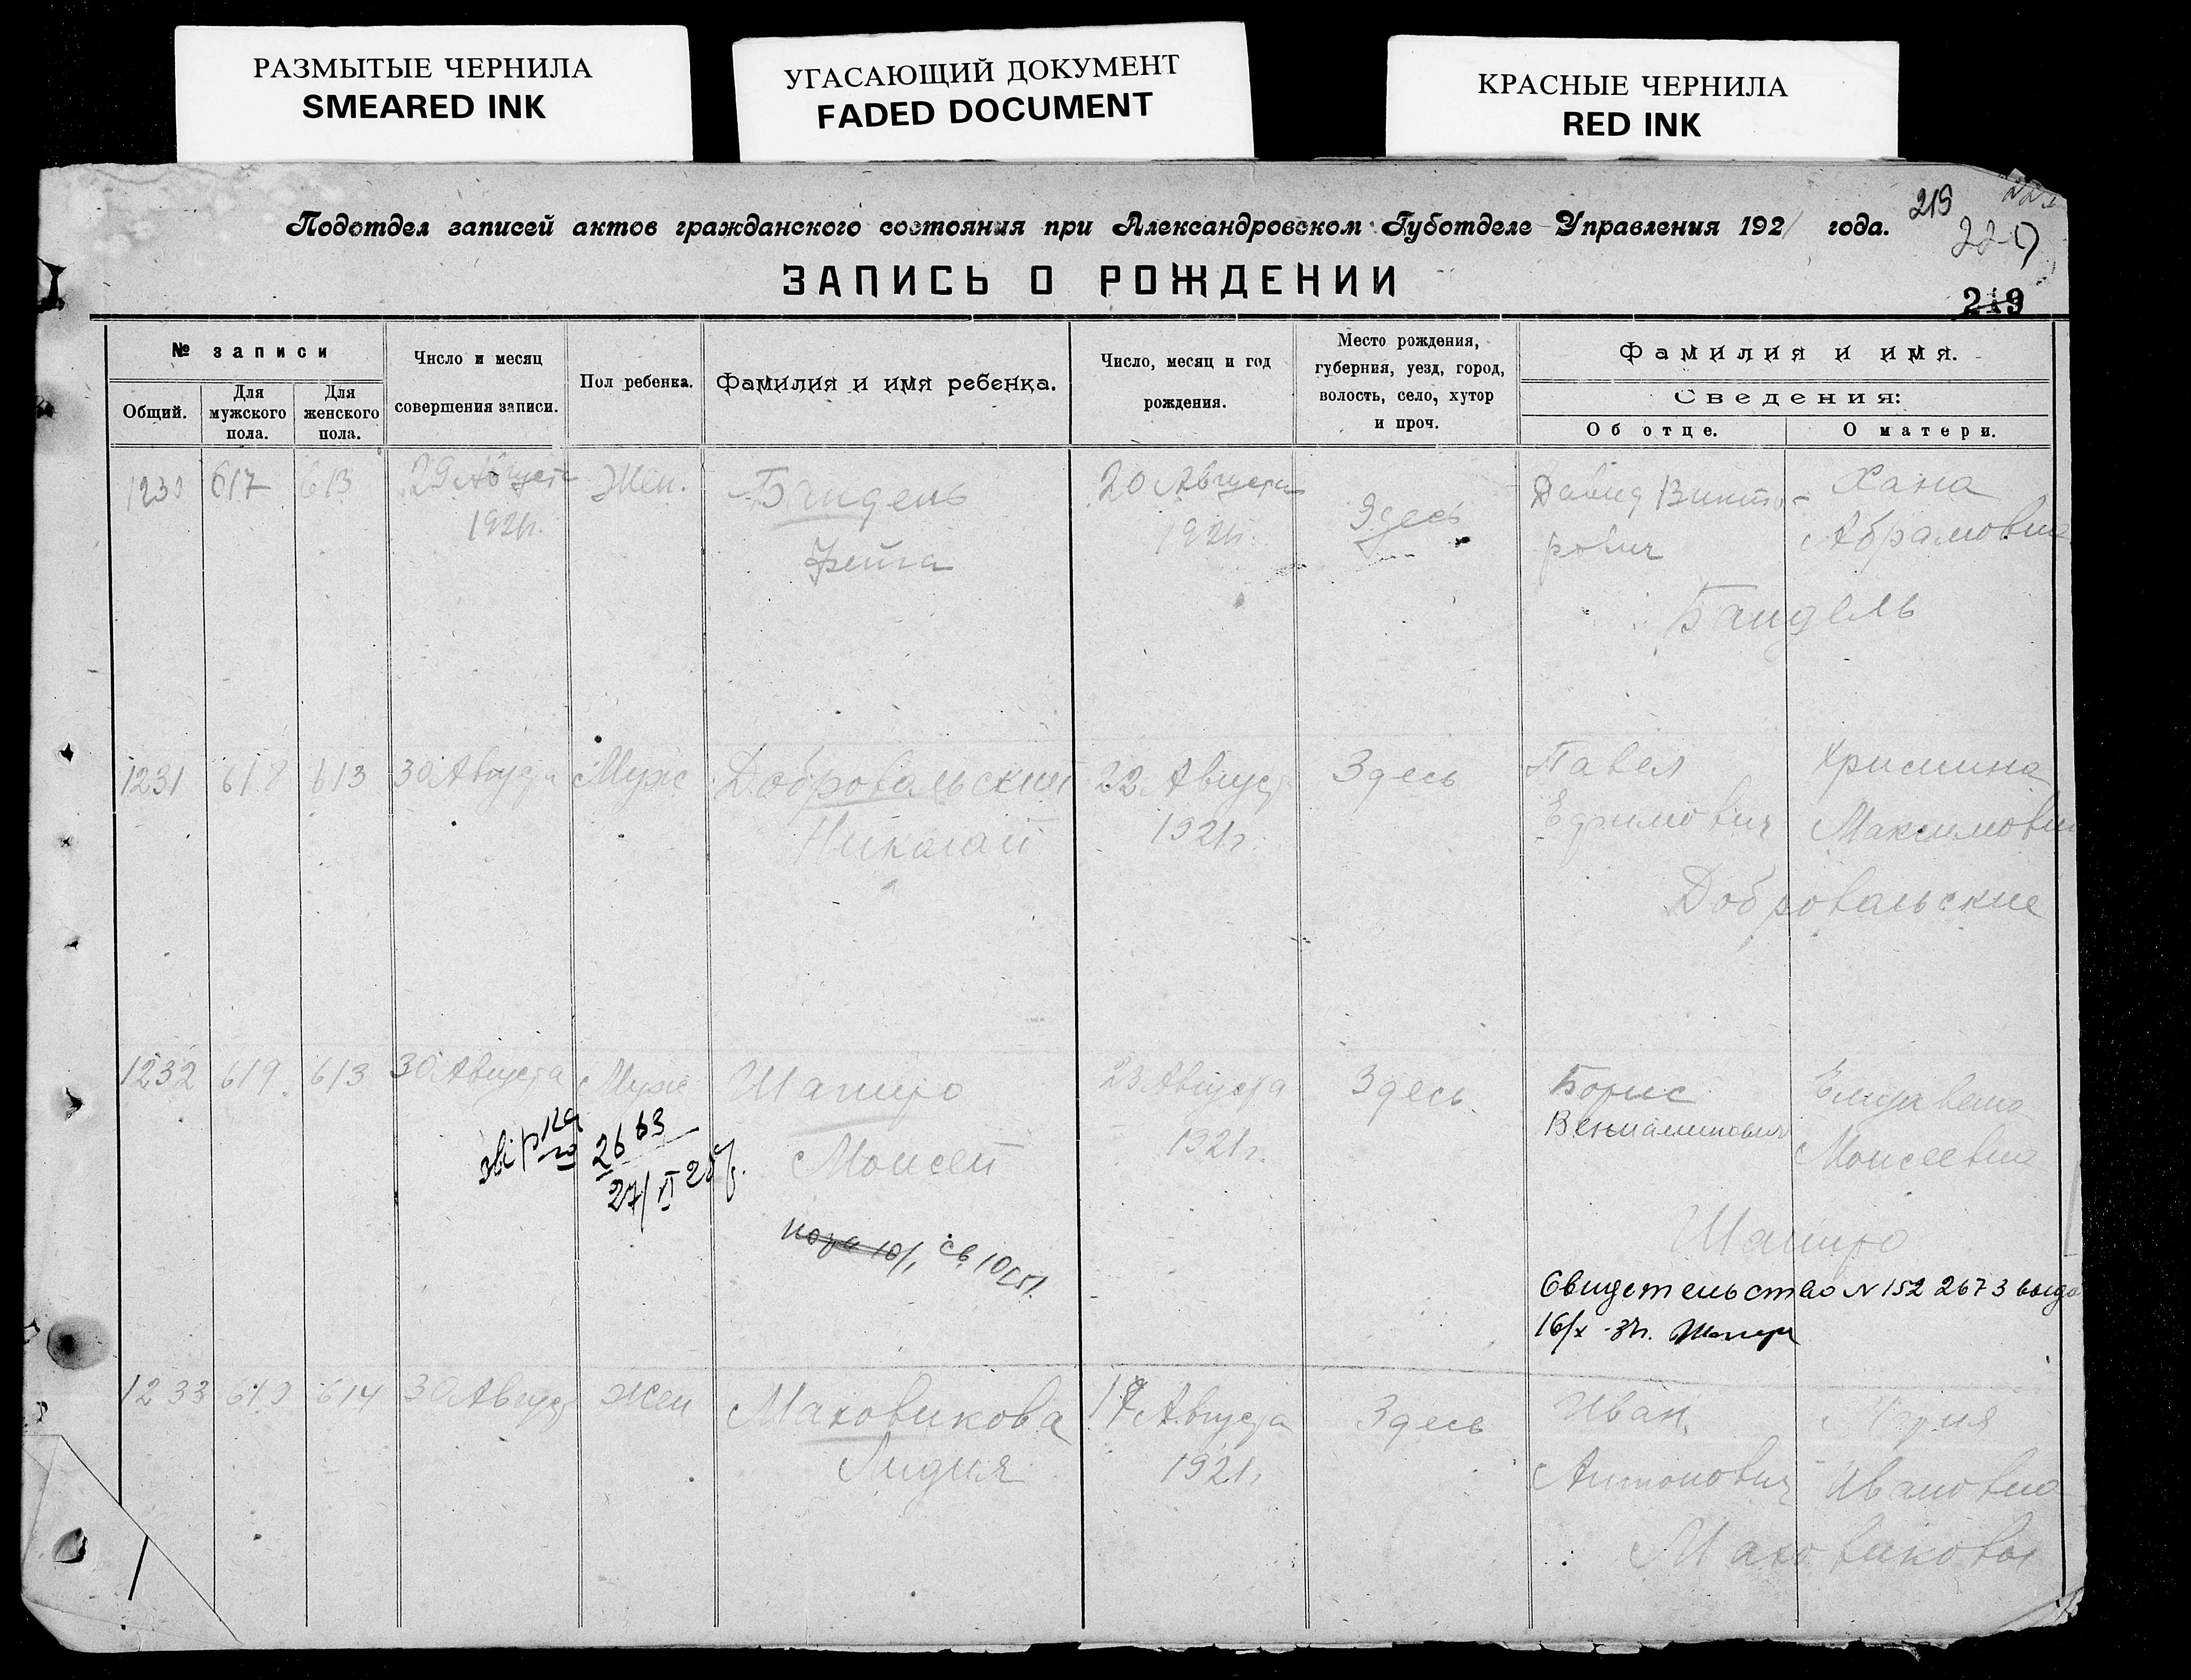 РАЗМЫТЫЕ ЧЕРНИЛА
SMEARED INK
УГАСАЮЩИЙ ДОКУМЕНТ
FADED DOCUMENT
КРАСНЫЕ ЧЕРНИЛА
RED INK
219
Подотдел записей актов гражданского состояния при Александровском Губотделе Управления 1921 года.
220
ЗАПИСЬ О РОЖДЕНИИ
219
№ записи
Общий.
Для мужского пола.
Для женского пола.
Число и месяц
совершения записи.
Пол ребенка.
Фамилия и имя ребенка.
Число, месяц и год
рождения.
Место рождения,
губерния, уезд, город,
волость, село, хутор
и проч.
Фамилия и имя.
Сведения:
Об отце.
О матери.
1230 617 613 29 Августа Жен. Бандель 20 Августа Здесь Давид Викто- Хана
1921г. 1921г. рович Абрамовна
Бандель
1231 618 613 30 Августа Муж Добровальский 22 Август Здесь Павел Христина
Николай 1921г. Ефимович Максимовна
Добровальские
1232 619 613 30 Августа Муж Шапиро 23 Августа Здесь Борис Елизавета
Вениаминович
Моисей 1921г. Моисеевна
2663
27/VI 28
Шапиро
Свидетельство N 152 2673 выда
16/X
1233 619 614 30 Август Жен Маховикова 17 Августа Здесь Иван Мария
Лидия 1921г. Антонович Ивановна
Маховиковы